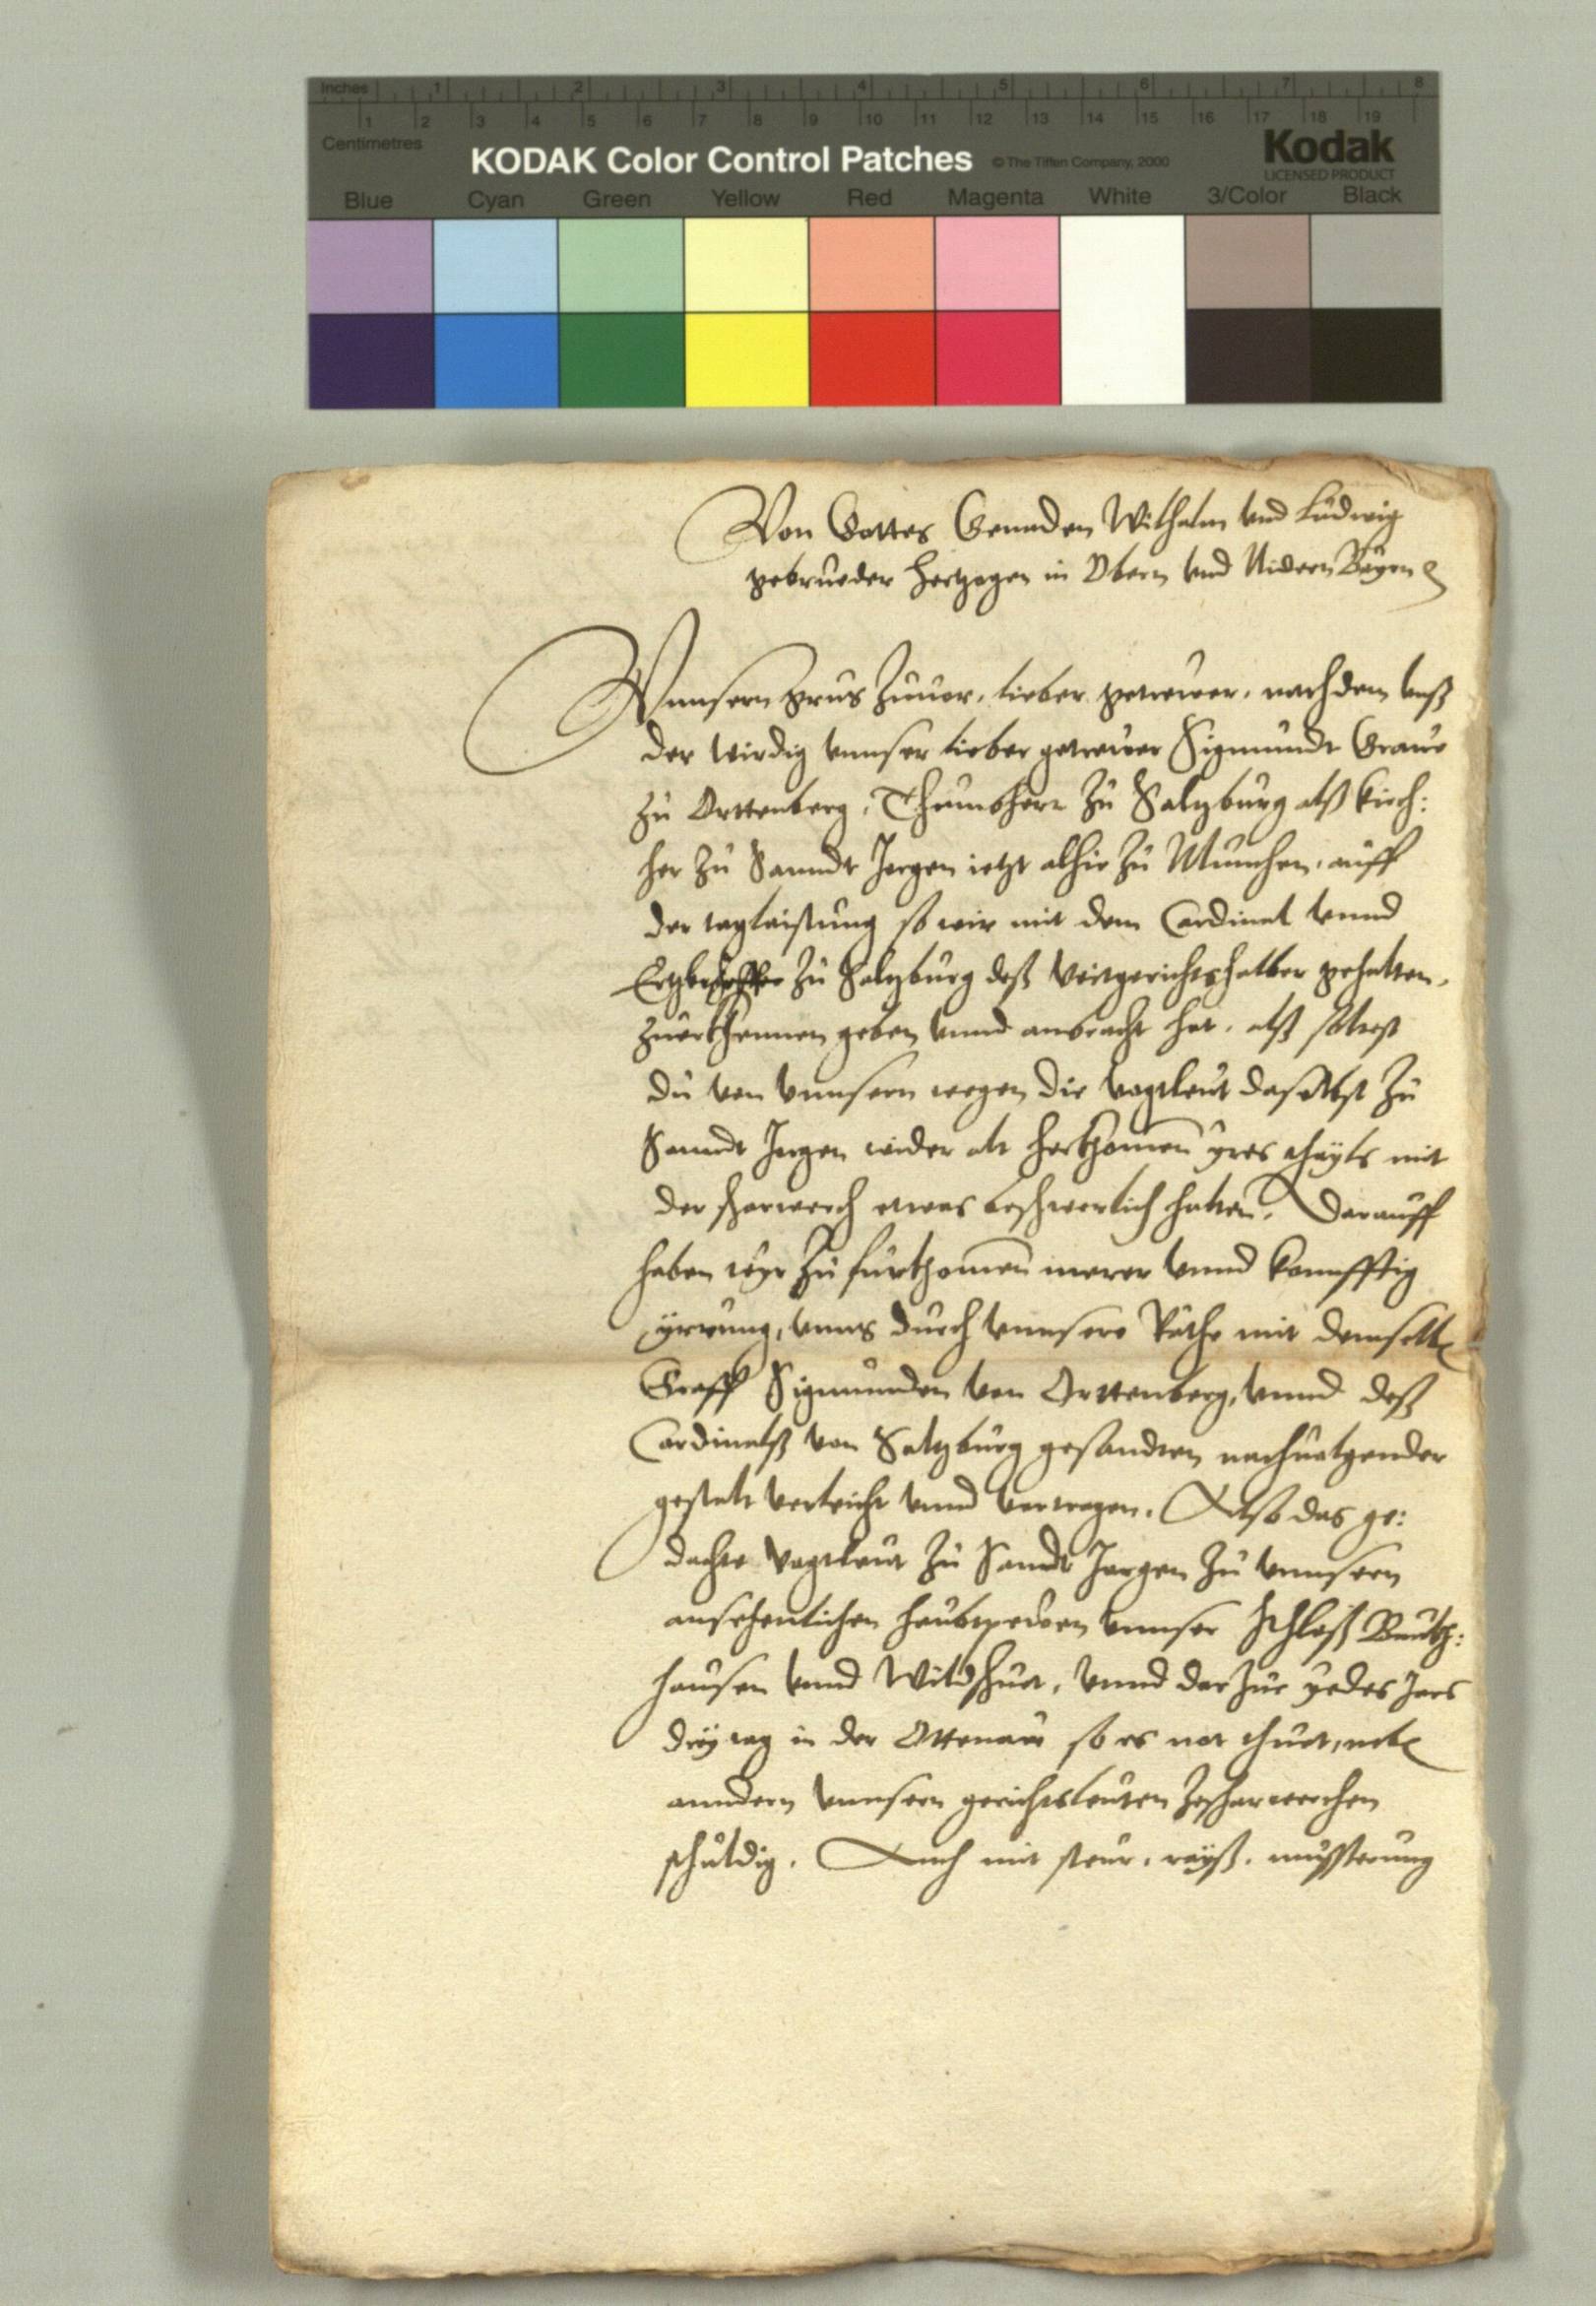 Inches 1 2 3 4 5 6 7 8
1 2 3 4 5 6 7 8 9 10 11 12 13 14 15 16 17 18 19
Centimetres
KODAK Color Control Patches © The Tiffen Company, 2000 Kodak
LICENSED PRODUCT
Blue Cyan Green Yellow Red Magenta White 3/Color Black
Von Gottes Genaden Wilhalm vnd Ludwig
gebrueder Hertzogen in Obern vnd Nidern Bayrn
Vnnsern grus zuuor, lieber getrewer, nachdem vnß
der wirdig vnnser lieber getrewer Sigmundt Graue
zu Orttenberg, Thumbherr zu Saltzburg alß kirch:
her zu Sanndt Jergen ietzt alhie zu Munchen, auff
der taglaistung so wir mit dem Cardinal vnnd
Ertzbischoffen zu Saltzburg deß Veitgerichtshalber gehalten,
zuerkhennen geben vnnd anbracht hat, alß soltest
du von vnnsern wegen die vogtleut daselbst zu
Sanndt Jergen wider alt herkhomen yres thayls mit
der scharwerch etwas beschwerlich halten. Darauff
haben wyr zu furkhomen merer vnnd konnfftig
yrrung, vnns durch vnnsere Räthe mit demselben
Graff Sigmunden von Orttenberg, vnnd deß
Cardinalß von Saltzburg gesandten nachuolgender
gestalt verleicht vnnd vertragen. Also das ge:
dachte vogtleut zu Sandt Jorgen zu vnnsern
ansehenlichen haubtgepewen vnnser Schloß
hausen vnnd Wildshuet, vnnd darzue yedes Jars
drey tag in der Ottenaw so es not thuet, neben
anndern vnnsern gerichtsleuten zescharwerchen
schuldig. Auch mit steur, rayß, mussterung